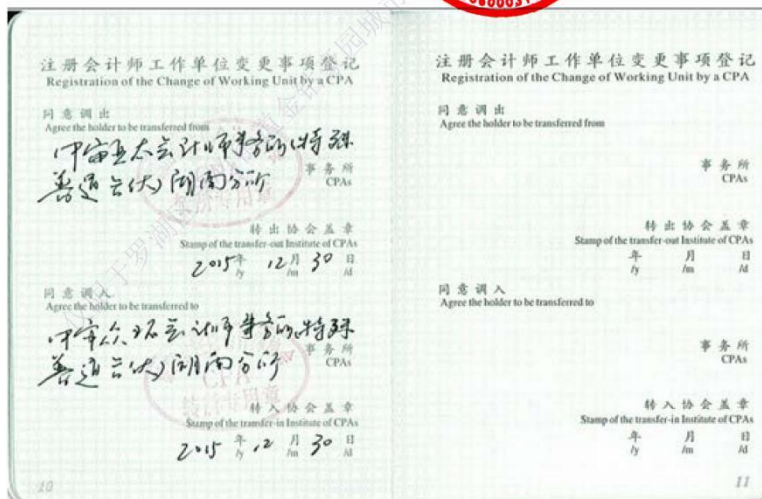 注册会计师工作单位变更事项登记
Registration of the Change of Working Unit by a CPA
同意调出
Agree the holder to be transferred from
中审亚太会计师事务所(特殊
普通合伙)湖南分所
事务所
CPAs
转出协会盖章
Stamp of the transfer-out Institute of CPAs
2015年 12月 30日
/y /m /d
同意调入
Agree the holder to be transferred to
中审众环会计师事务所(特殊
普通合伙)湖南分所
事务所
CPAs
CPA
转所专用章
转入协会盖章
Stamp of the transfer-in Institute of CPAs
2015年 12月 30日
/y /m /d
10
注册会计师工作单位变更事项登记
Registration of the Change of Working Unit by a CPA
同意调出
Agree the holder to be transferred from
事务所
CPAs
转出协会盖章
Stamp of the transfer-out Institute of CPAs
年 月 日
/y /m /d
同意调入
Agree the holder to be transferred to
事务所
CPAs
转入协会盖章
Stamp of the transfer-in Institute of CPAs
年 月 日
/y /m /d
11